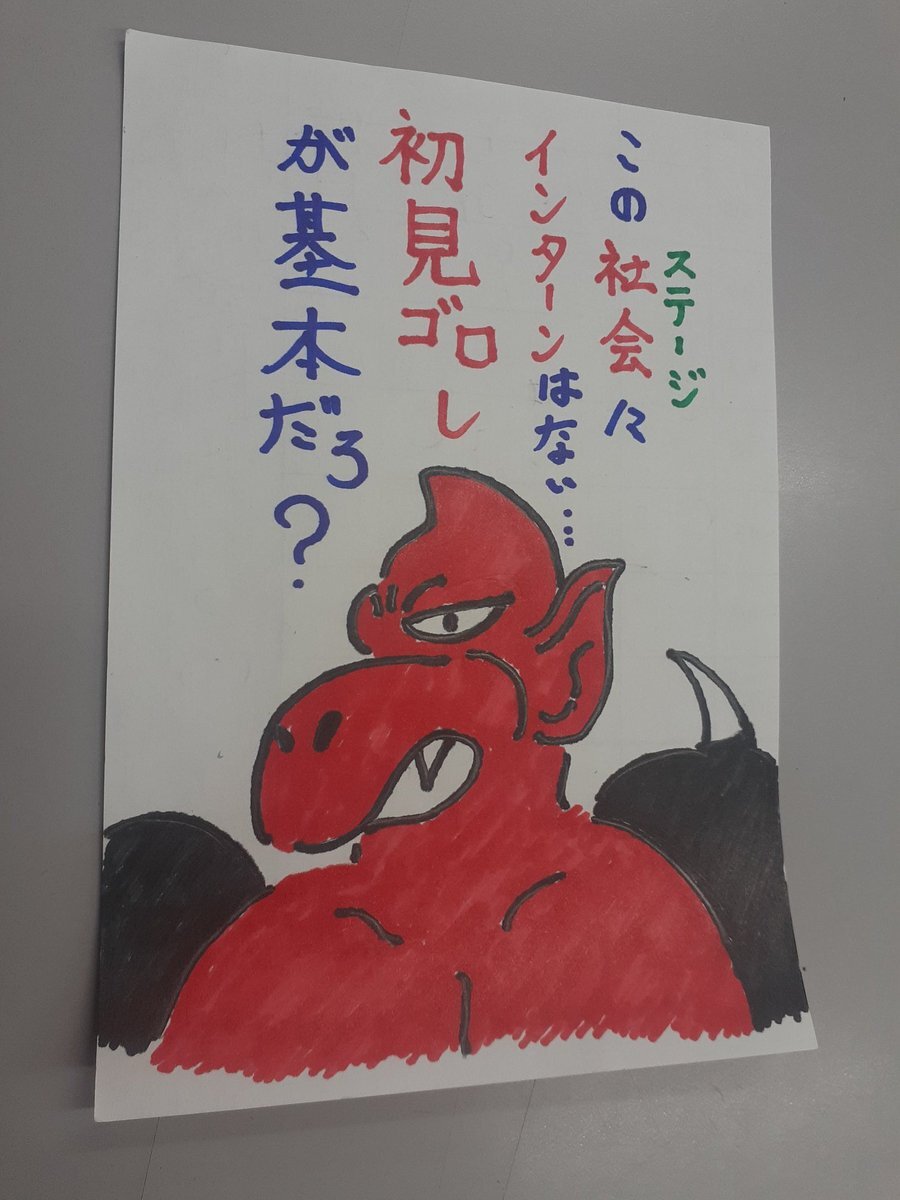 ステージ
この社会に
インターンはない…
初見ゴロし
が基本だろ?